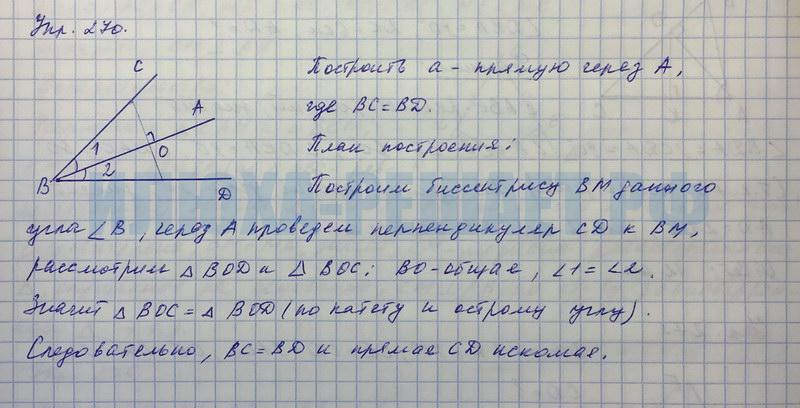 Упр. 270.
C
A
1
O
2
B
D
Построить a - прямую через A,
где BC = BD.
План построения:
Построим биссектрису BM данного
угла ∠B, через A проведем перпендикуляр CD к BM,
рассмотрим △ BOD и △ BOC: BO-общая, ∠1 = ∠2.
Значит △ BOC = △ BOD (по катету и острому углу).
Следовательно, BC = BD и прямая CD искомая.